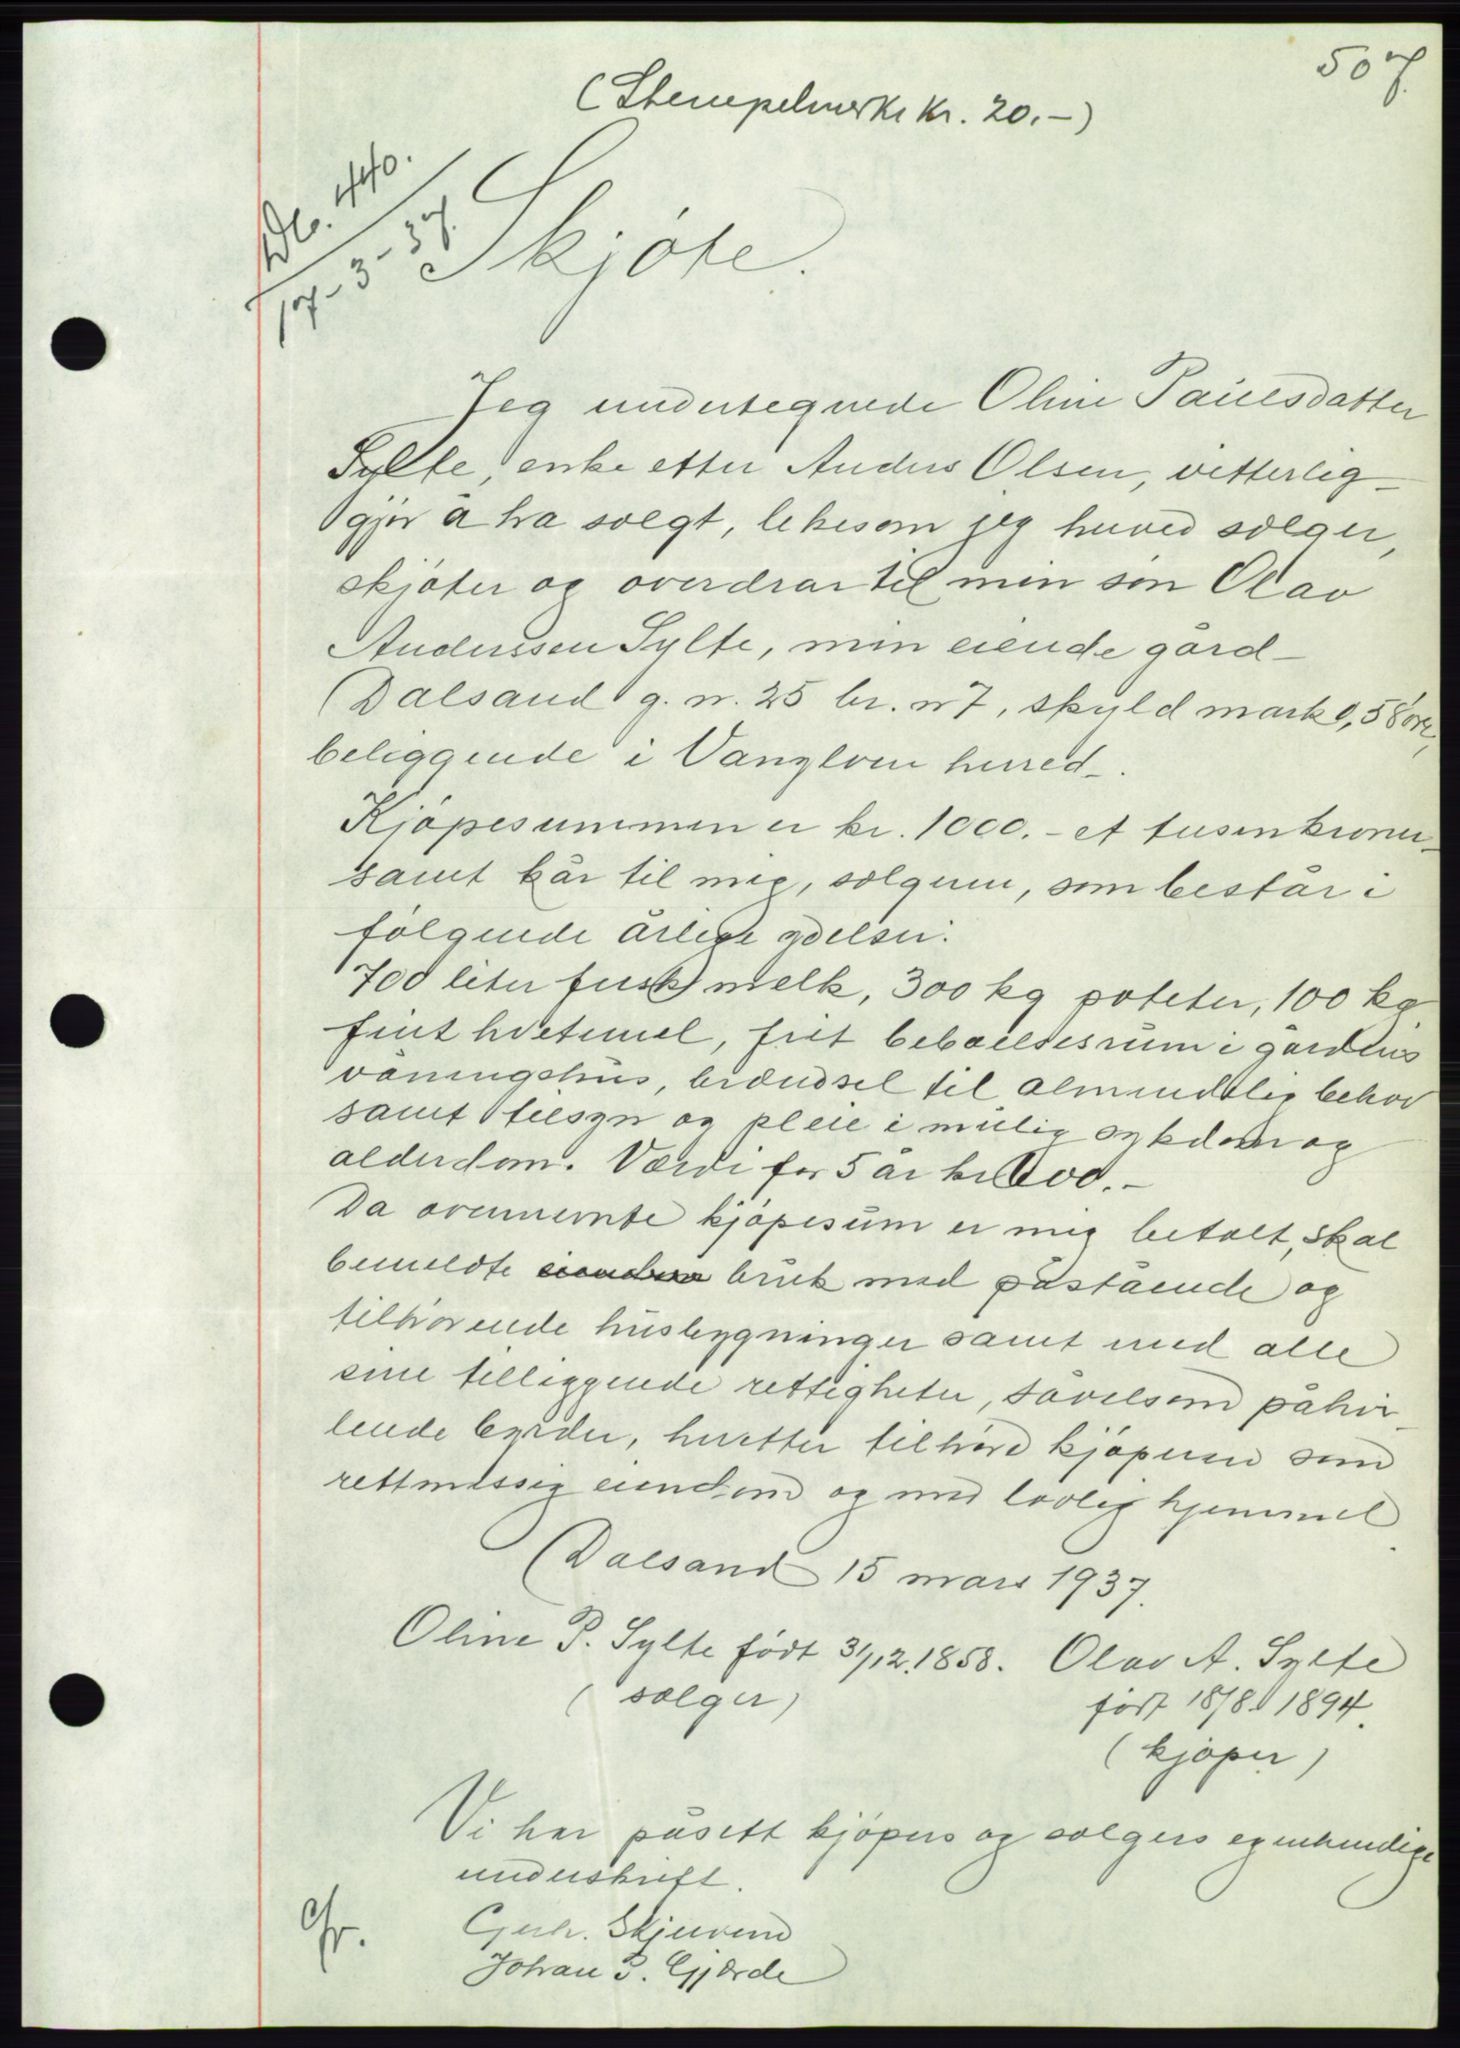 507.
(Stempelmerke kr. 20.-)
Db. 440.
17-3-37.
Skjöte.
Jeg undertegnede Oline Paulsdatter
Sylte, enke etter Anders Olsen, vitterlig-
gjör å ha solgt, likesom jeg herved sælger,
skjöter og overdrar til min sön Olav
Anderssen Sylte, min eiende gård-
Dalsand g. nr. 25 br. nr 7, skyld mark 0,58 öre,
beliggende i Vanylven herred.
Kjöpesummen er kr. 1000.- et tusen kroner-
samt kår til mig, sælgeren, som består i
fölgende årlige ydelser:
700 liter fersk melk, 300 kg poteter, 100 kg
fint hvetemel, frit beboelsesrum i gårdens
våningshus, brændsel til almindelig behov
samt tilsyn og pleie i mulig sykdom og
alderdom. Værdi for 5 år kr 600.-
Da ovennevnte kjöpesum er mig betalt, skal
bemeldte bruk med påstående og
tilhörende husbygninger samt med alle
sine tilliggende rettigheter, såvelsom påhvi-
lende byrder, herefter tilhöre kjöperen som
rettmessig eiendom og med lovlig hjemmel.
Dalsand 15 mars 1937.
Oline P. Sylte født 31/12.1858. Olav A. Sylte
(sælger)
født 18/8 1894.
(kjöper)
Vi har påsett kjöpers og sælgers egenhendige
underskrift.
Gerh. Skjerven
Johan P. Gjærde